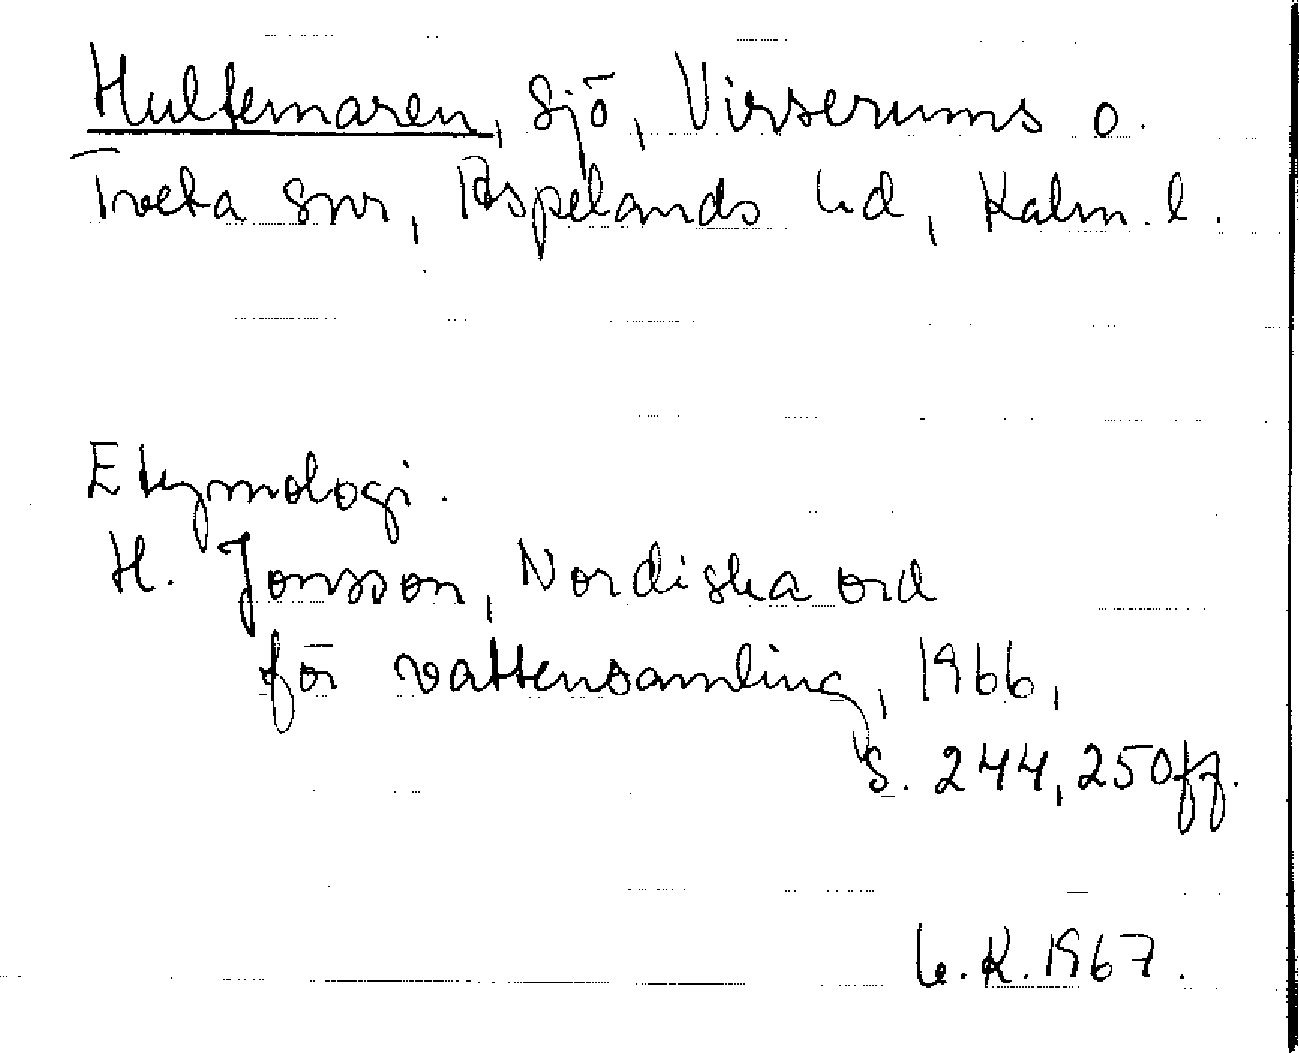 Hultemaren, sjö, Virserums o.
Tveta snr, Aspelands hd, Kalm. l.
Etymologi.
H. Jonsson, Nordiska ord
för vattensamling, 1966,
s. 244, 250ff.
G. K. 1967.